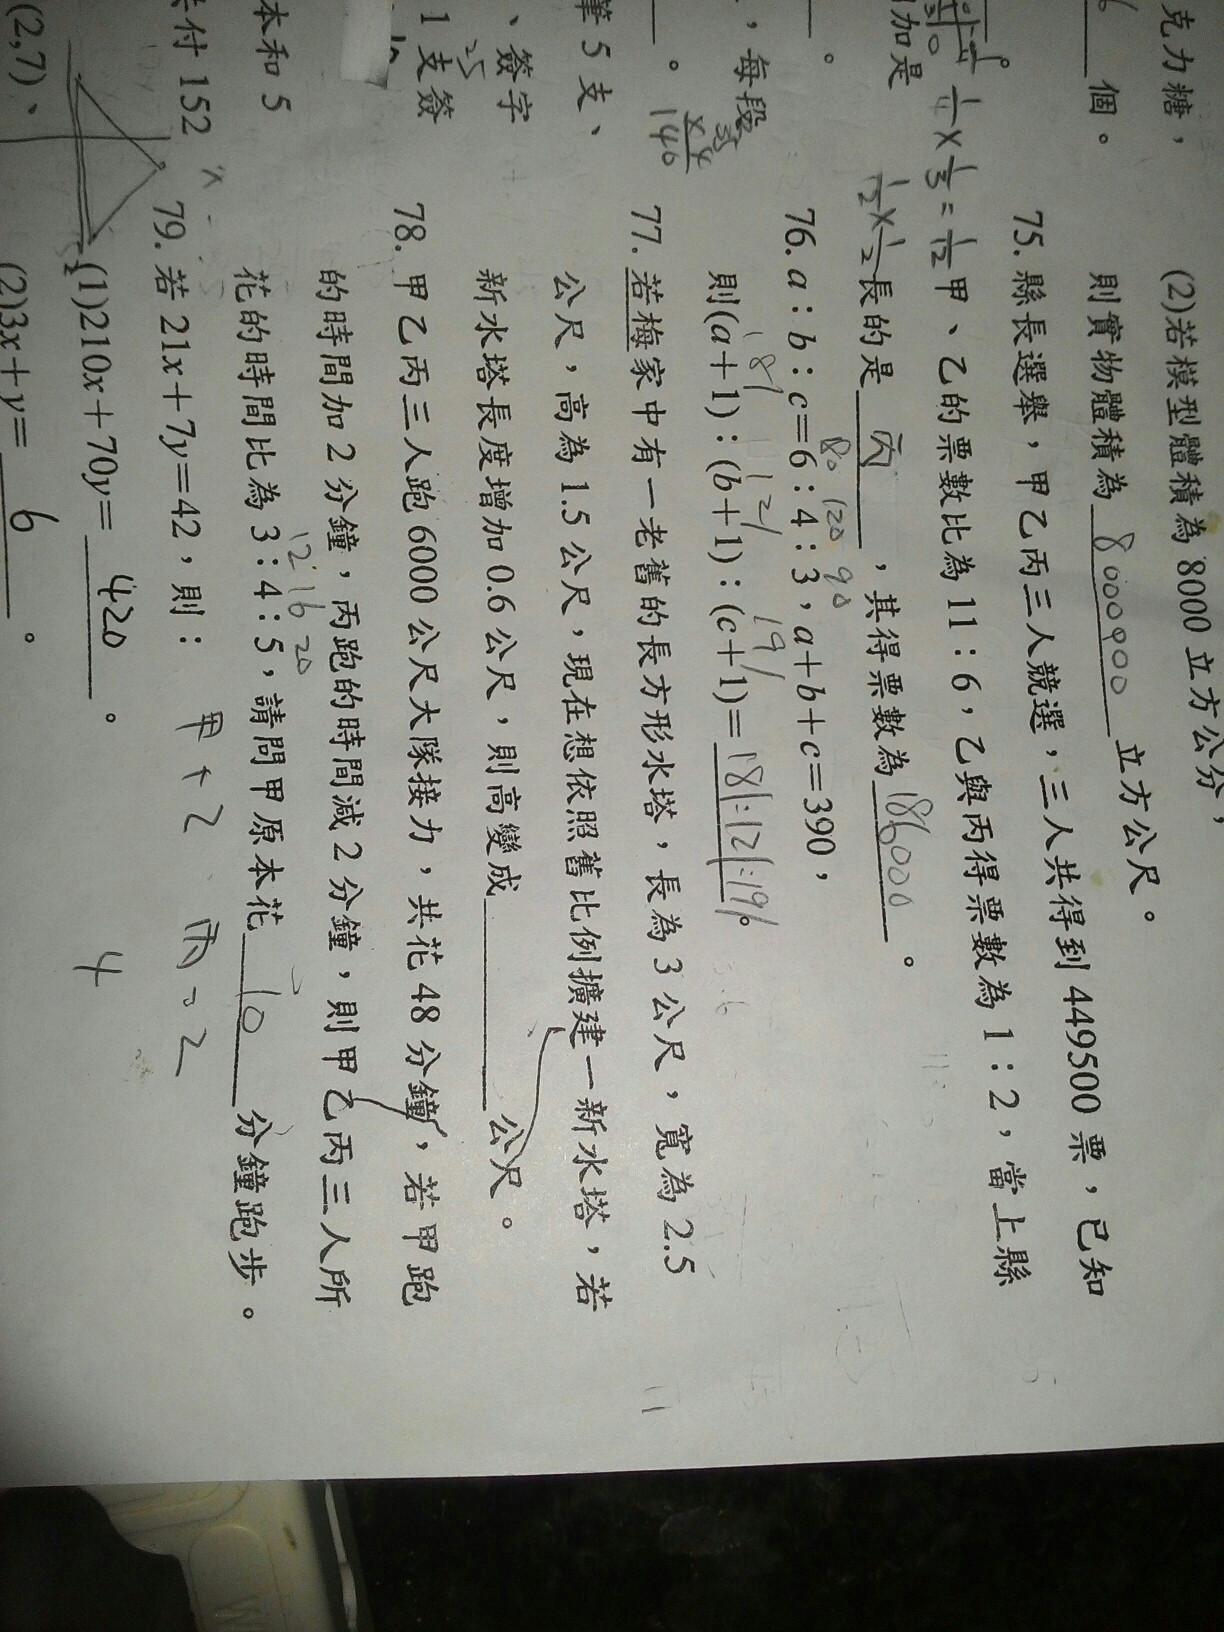 克力糖，
個。
加是
1/4×1/3=1/12
1/2×1/2
，每段
×4
146
筆5支、
、簽字
25
1支簽
本和5
付152
(2,7)、
(2)若模型體積為8000立方公分，
則實物體積為8000900立方公尺。
75.縣長選舉，甲乙丙三人競選，三人共得到449500票，已知
甲、乙的票數比為11:6，乙與丙得票數為1:2，當上縣
長的是丙，其得票數為186000。
80 120 90
76.a:b:c=6:4:3，a+b+c=390，
181 121 191
則(a+1):(b+1):(c+1)=181:121:191。
77.若梅家中有一老舊的長方形水塔，長為3公尺，寬為2.5
公尺，高為1.5公尺，現在想依照舊比例擴建一新水塔，若
新水塔長度增加0.6公尺，則高變成公尺。
78.甲乙丙三人跑6000公尺大隊接力，共花48分鐘，若甲跑
的時間加2分鐘，丙跑的時間減2分鐘，則甲乙丙三人所
12 16 20
花的時間比為3:4:5，請問甲原本花10分鐘跑步。
甲+2 丙-2
79.若21x+7y=42，則：
4
(1)210x+70y=420。
(2)3x+y=6。